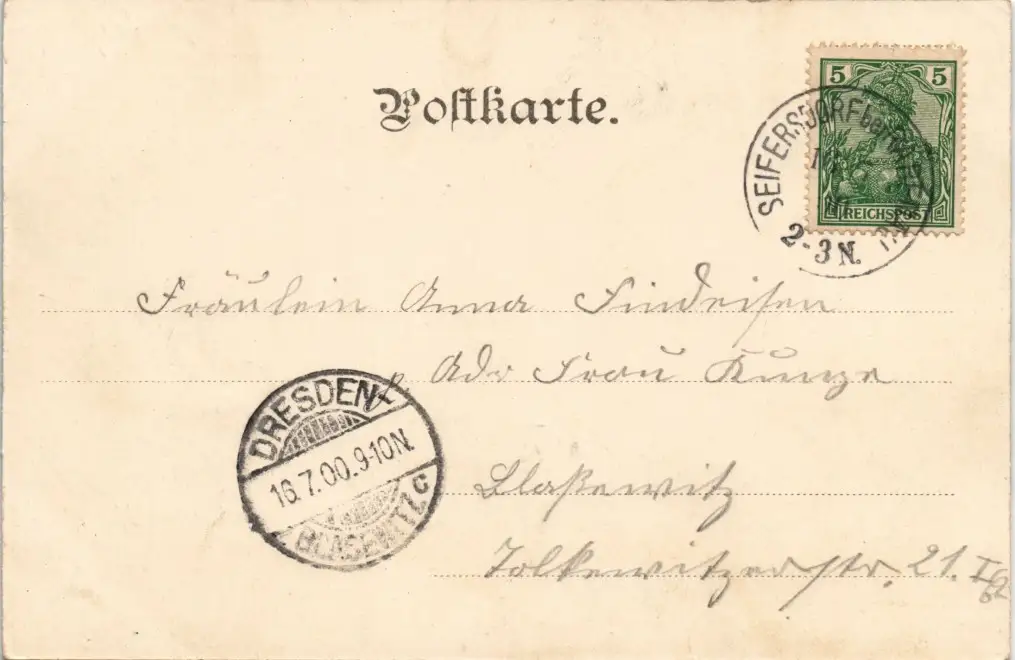 Postkarte.
5 5
REICHSPOST
SEIFERSDORF bei
2-3 N.
Fräulein Anna Findeisen
Adr Frau Kunze
DRESDEN
16.7.00.9-10N.
BLASEWITZ
c
Blaßewitz
Tolkewitzerstr. 21. I